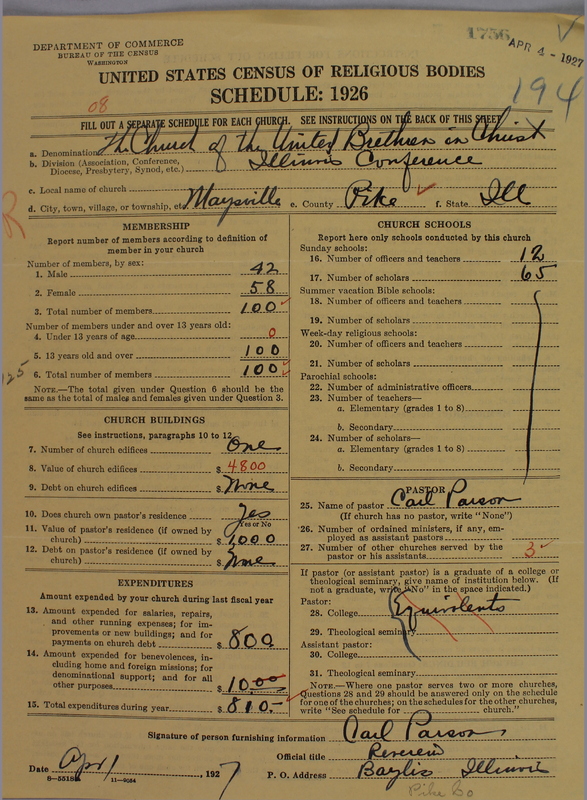 1756
APR 4 - 1927
DEPARTMENT OF COMMERCE
BUREAU OF THE CENSUS
WASHINGTON
UNITED STATES CENSUS OF RELIGIOUS BODIES
SCHEDULE: 1926
194
08
FILL OUT A SEPARATE SCHEDULE FOR EACH CHURCH. SEE INSTRUCTIONS ON THE BACK OF THIS SHEET
a. Denomination The Church of the United Brethren in Christ
b. Division (Association, Conference, Diocese, Presbytery, Synod, etc.) Illinois Conference
c. Local name of church
d. City, town, village, or township, etc. Maysville e. County Pike f. State Ill
R
MEMBERSHIP
Report number of members according to definition of
member in your church
Number of members, by sex:
1. Male 42
2. Female 58
3. Total number of members 100
Number of members under and over 13 years old:
4. Under 13 years of age 0
5. 13 years old and over 100
6. Total number of members 100
125
NOTE.—The total given under Question 6 should be
same as the total of males and females given under Question 3.
CHURCH BUILDINGS
See instructions, paragraphs 10 to 12
7. Number of church edifices One
8. Value of church edifices $ 4800
9. Debt on church edifices $ None
10. Does church own pastor's residence Yes
Yes or No
11. Value of pastor's residence (if owned by
church) $ 1000
12. Debt on pastor's residence (if owned by
church) $ None
EXPENDITURES
Amount expended by your church during last fiscal year
13. Amount expended for salaries, repairs,
and other running expenses; for im-
provements or new buildings; and for
payments on church debt $ 800
14. Amount expended for benevolences, in-
cluding home and foreign missions; for
denominational support; and for all
other purposes $ 10.00
15. Total expenditures during year $ 810.-
CHURCH SCHOOLS
Report here only schools conducted by this church
Sunday schools:
16. Number of officers and teachers 12
17. Number of scholars 65
Summer vacation Bible schools:
18. Number of officers and teachers
19. Number of scholars
Week-day religious schools:
20. Number of officers and teachers
21. Number of scholars
Parochial schools:
22. Number of administrative officers
23. Number of teachers—
a. Elementary (grades 1 to 8)
b. Secondary
24. Number of scholars—
a. Elementary (grades 1 to 8)
b. Secondary
PASTOR
25. Name of pastor Carl Parson
(If church has no pastor, write "None")
26. Number of ordained ministers, if any, em-
ployed as assistant pastors
27. Number of other churches served by the
pastor or his assistants 3
If pastor (or assistant pastor) is a graduate of a college or
theological seminary, give name of institution below. (If
not a graduate, write "No" in the space indicated.)
Pastor:
28. College Equivalents
29. Theological seminary
Assistant pastor:
30. College
31. Theological seminary
NOTE.—Where one pastor serves two or more churches,
Questions 28 and 29 should be answered only on the schedule
for one of the churches; on the schedules for the other churches,
write "See schedule for church."
Signature of person furnishing information Carl Parson
Official title Reverend
Date Apr 1, 1927 P. O. Address Baylis Illinois
8—5518 11—9064
Pike Co